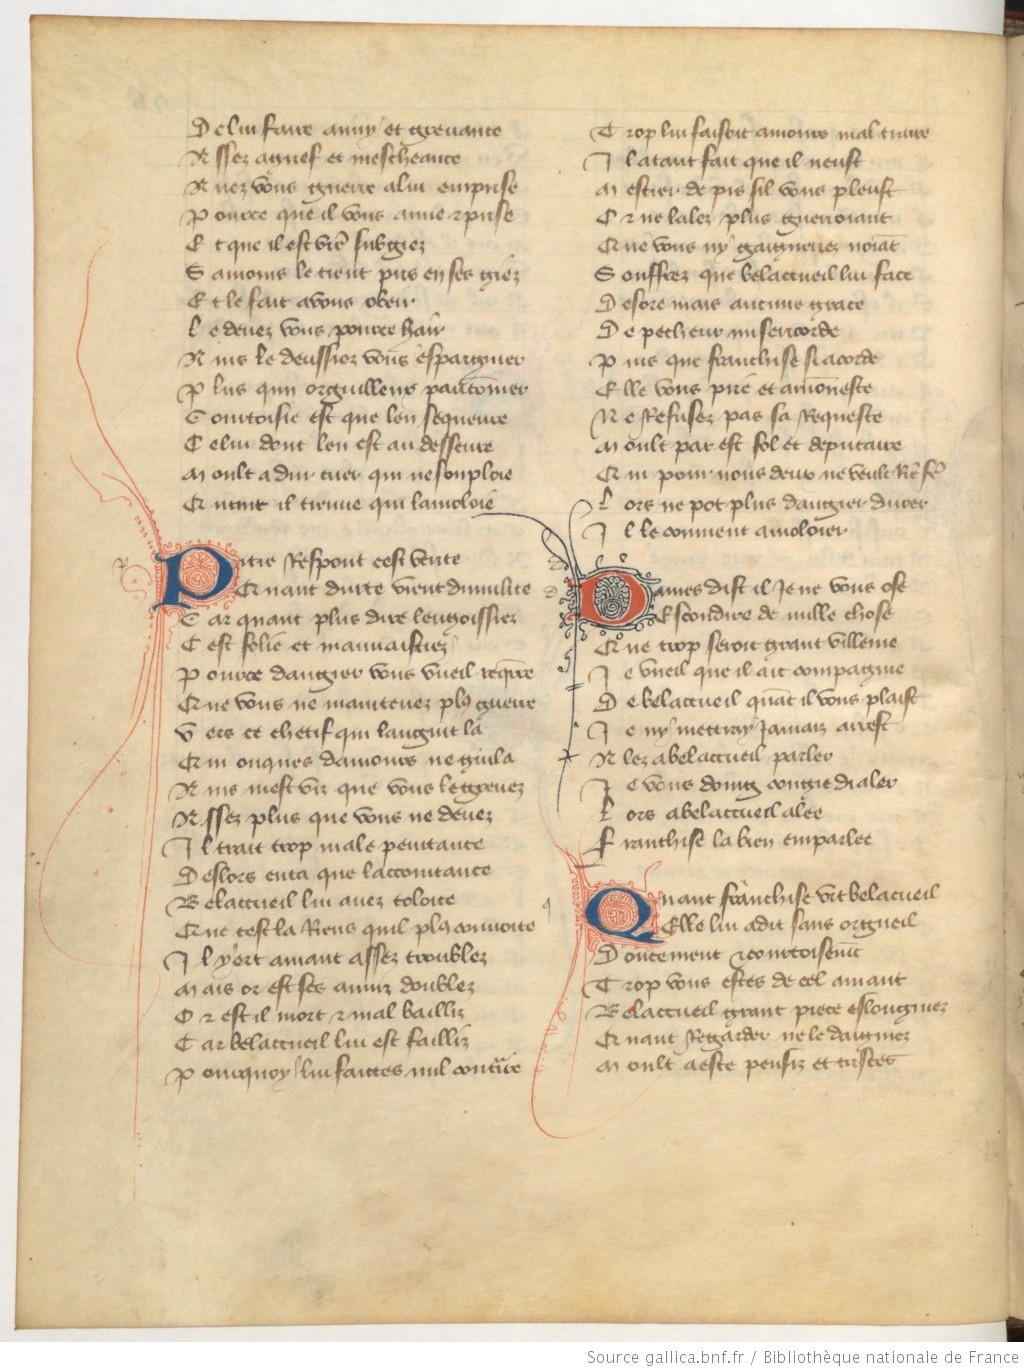 De lui faire anuy et grevance
Assez a grief et mescheance
Avez vous guerre a lui emprise
Pource que il vous aime et prise
Et que il est vr̃e subgiez
S amours le tient pris en ses giez
Et le fait a vous obeir
Le devez vous pource hair
Ains le deussiez vous espargnier
Plus qun orguilleux pautõnier
Courtoisie est que len sequeure
Celui dont len est au desseure
Moult a dur cuer qui ne souploie
Quant il treuve qui lamoloie
Pitie Respont cest verite
Quant durte vient dumilite
Car quant plus dure lengoissiez
Cest folie et mauvaistiez
Pource dangier vous vueil reqr̃re
Que vous ne maintenez plꝯ guerre
Vers ce chetif qui languit la
Qui onques damours ne guila
Avis mest viz que vous le grevez
Assez plus que vous ne devez
Il trait trop male penitance
Deslors enca que laccointance
Belaccueil lui avez toloite
Que cest la Riens quil plꝯ convoite
Il yert avant assez troublez
Mais or est ses anuiz doublez
Or est il mort et mal bailliz
Car belaccueil lui est failliz
Pourquoy lui faites nul cont̃ire
Trop lui faisoit amours mal traire
Il a tant fait que il neust
Mestier de pis sil vous pleust
Or ne lalez plus guerroiant
Que vous ny gaigneriez noiãt
Souffrez que belaccueil lui face
Desore mais aucune grace
De pecheur misericorde
Puis que franchise si acorde
Elle vous prie et amõneste
Ne Refusez pas sa Requeste
Moult par est fol et deputaire
Qui pour nous deux ne veult Riẽ fẽ
Lors ne pot plus dangier durer
Il le convient amolier
Dames dist il Je ne vous ose
Escondire de mille chose
Que trop seroit grant villenie
Je vueil que il ait compagnie
De belaccueil quãt il vous plaist
Je ny mettray Jamaiz arrest
Alez a belaccueil parler
Je vous doing congie daler
Lors a belaccueil alee
Franchise la bien emparlee
Quant franchise vit belacueil
Elle lui a dit sans orgueil
Doucement et courtoisemẽt
Trop vous estes de cel amant
Belaccueil grant piece eslongniez
Quant Regarder ne le daigniez
Moult a este pensiz et tristes
Source gallica.bnf.fr / Bibliothèque nationale de France